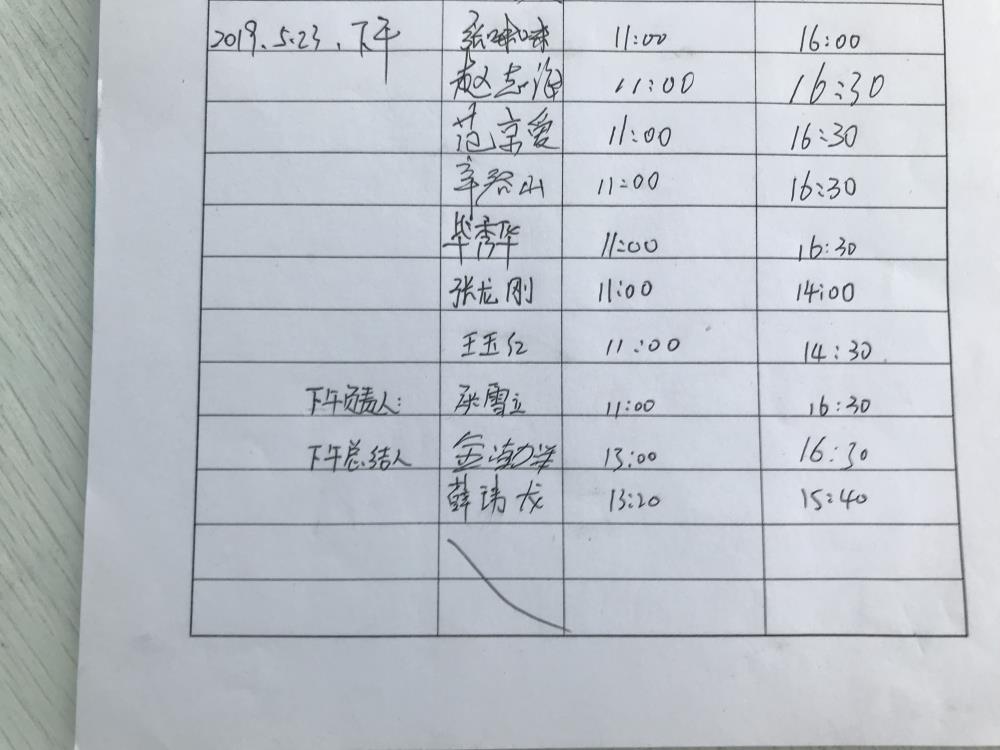 2019.5.23.下午 张 11:00 16:00
赵志海 11:00 16:30
范京爱 11:00 16:30
辛谷山 11:00 16:30
毕秀华 11:00 16:30
张龙刚 11:00 14:00
王玉红 11:00 14:30
下午负责人: 张雪立 11:00 16:30
下午总结人 金 13:00 16:30
薛玮龙 13:20 15:40